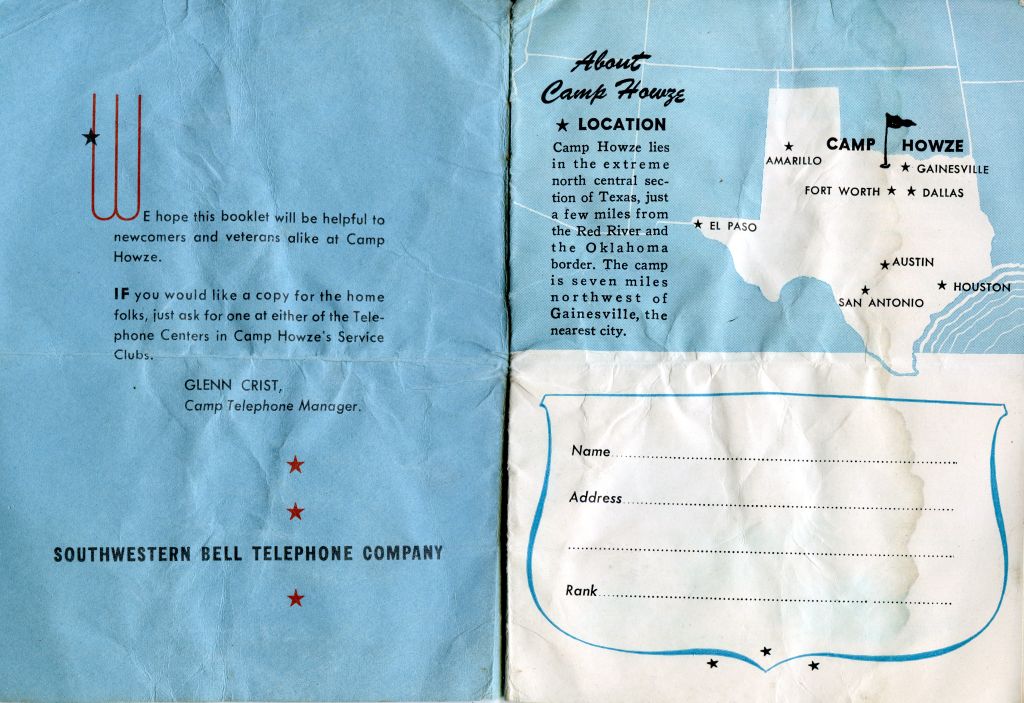 WE hope this booklet will be helpful to
newcomers and veterans alike at Camp
Howze.
IF you would like a copy for the home
folks, just ask for one at either of the Tele-
phone Centers in Camp Howze's Service
Clubs.
GLENN CRIST,
Camp Telephone Manager.
SOUTHWESTERN BELL TELEPHONE COMPANY
About
Camp Howze
LOCATION
Camp Howze lies
in the extreme
north central sec-
tion of Texas, just
a few miles from
the Red River and
the Oklahoma
border. The camp
is seven miles
northwest of
Gainesville, the
nearest city.
CAMP HOWZE
AMARILLO
GAINESVILLE
FORT WORTH
DALLAS
EL PASO
AUSTIN
HOUSTON
SAN ANTONIO
Name
Address
Rank